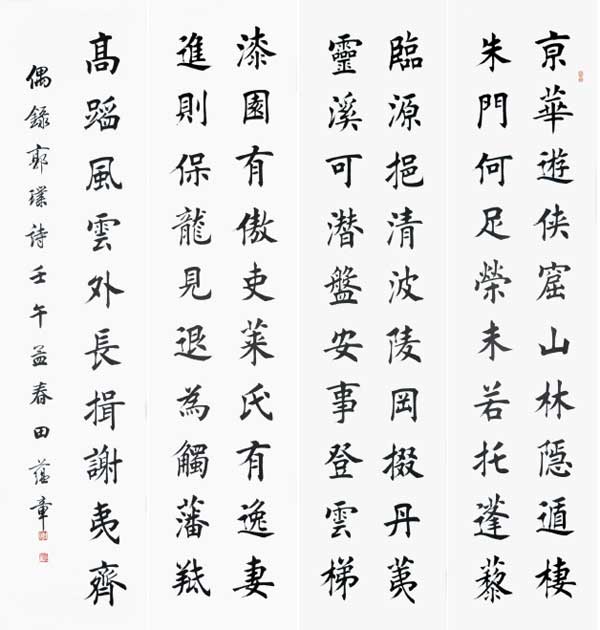 亰華遊侠窟山林隠遁棲
朱門何足榮未若托蓬藜
臨源挹清波陵岡掇丹荑
靈溪可潜盤安事登雲梯
漆園有傲吏萊氏有逸妻
進則保龍見退為觸藩羝
髙蹈風雲外長揖謝夷齊
偶錄郭璞詩壬午孟春田蕴章